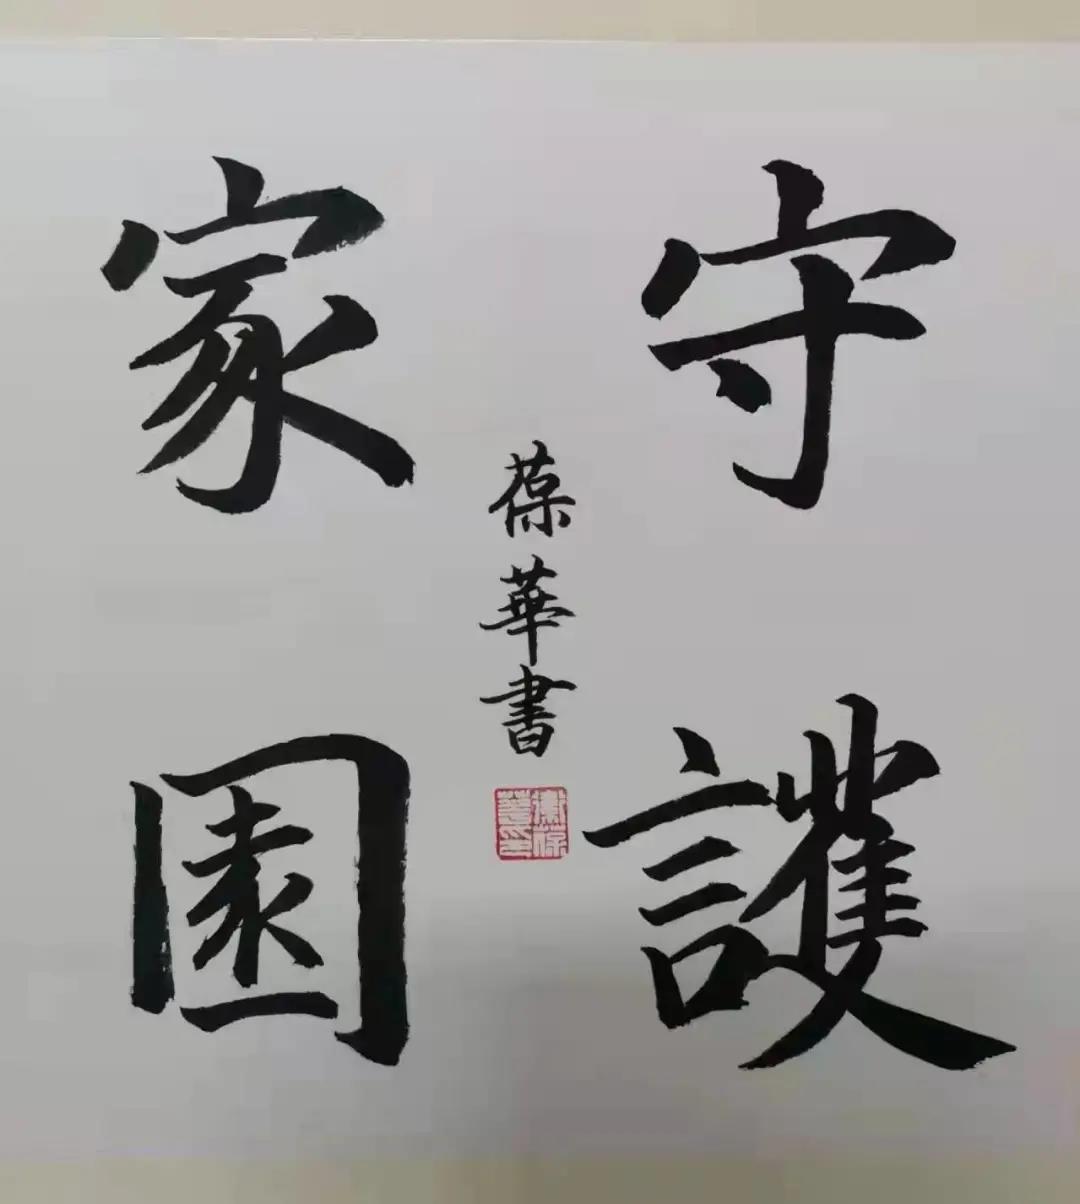 守護
家園
葆華書